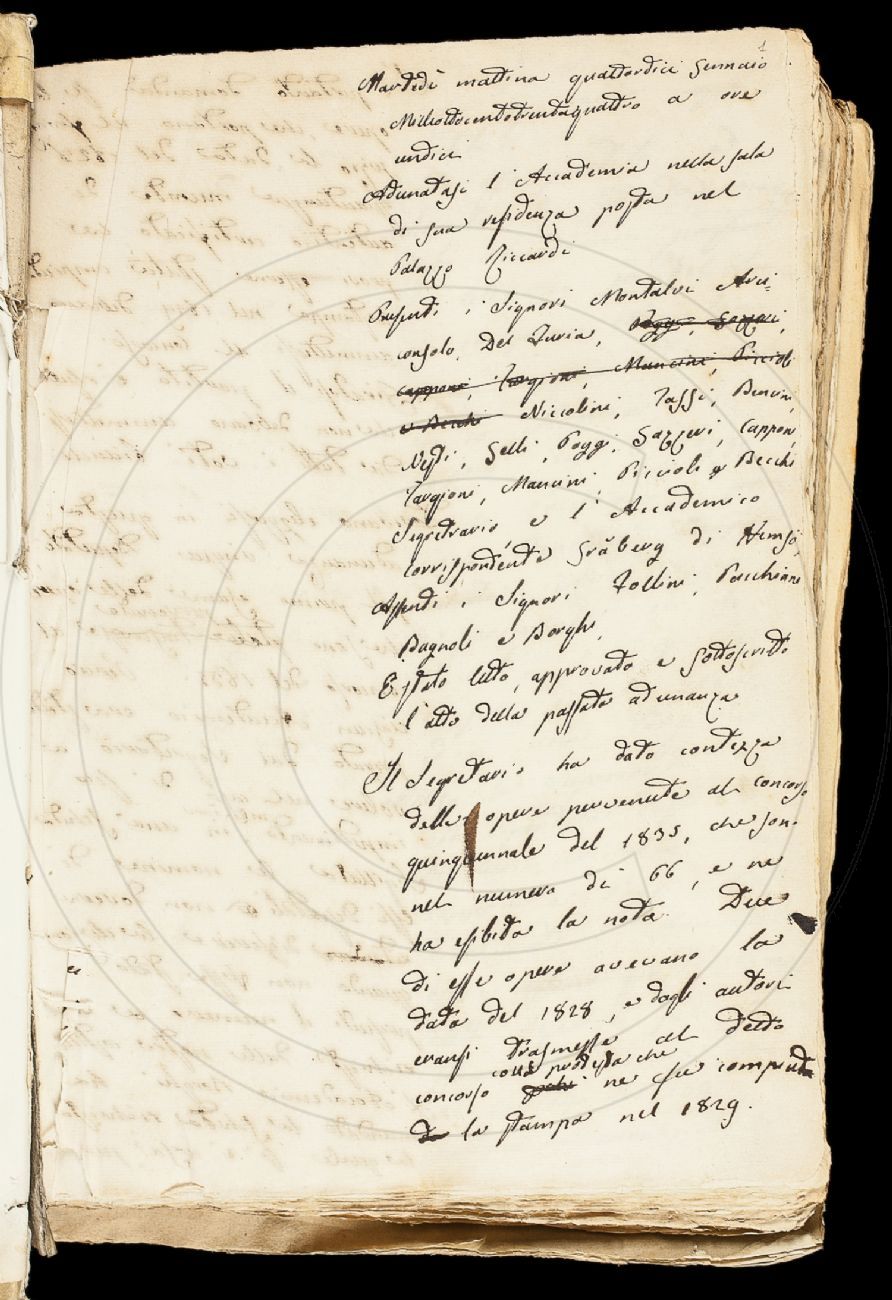 1
Martedì mattina quattordici Gennaio
Milleottocentotrentaquattro a ore
undici
Adunatasi l'Accademia nella sala
di sua residenza posta nel
Palazzo Riccardi
Presenti i Signori Montalvi Arci-
consolo, Del Furia, Poggi, Gazzeri,
Capponi, Targioni, Mancini, Piccioli
e Becchi Niccolini, Tassi, Bencini,
Nesti, Gelli, Poggi, Gazzeri, Capponi,
Targioni, Mancini, Piccioli e Becchi
Segretario, e l'Accademico
corrispondente Gråberg di Hemsö,
Assenti i Signori Zollini, Pacchiani
Bagnoli e Borghi,
È stato letto, approvato e sottoscritto
l'atto della passata adunanza
Il Segretario ha dato contezza
delle opere pervenute al concorso
quinquennale del 1835, che son
nel numero di 66, e ne
ha esibita la nota. Due
di esse opere avevano la
data del 1828, e dagli autori
eransi trasmesse al detto
colla protesta che
concorso ne fu compiuta
la stampa nel 1829.